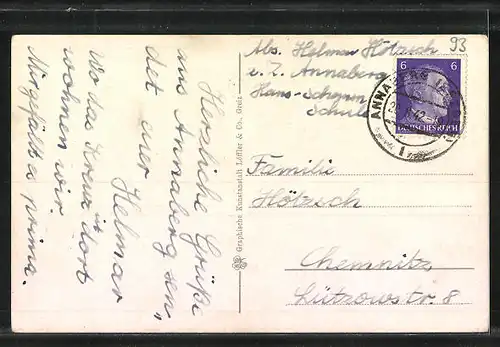 Herzliche Grüße
aus Annaberg sen,
det euer
Helmar
Wo das Kreuz ist dort
wohnen wir.
Mir gefällt a
prima.
Graphische Kunstanstalt Löffler & Co., Greiz
Abs. Helmar Hötzsch
z. Z. Annaberg
Hans-Schemm
Schule
93
6 6
DEUTSCHES REICH
ANNABERG
Familie
Hötzsch
Chemnitz
Lützowstr. 8